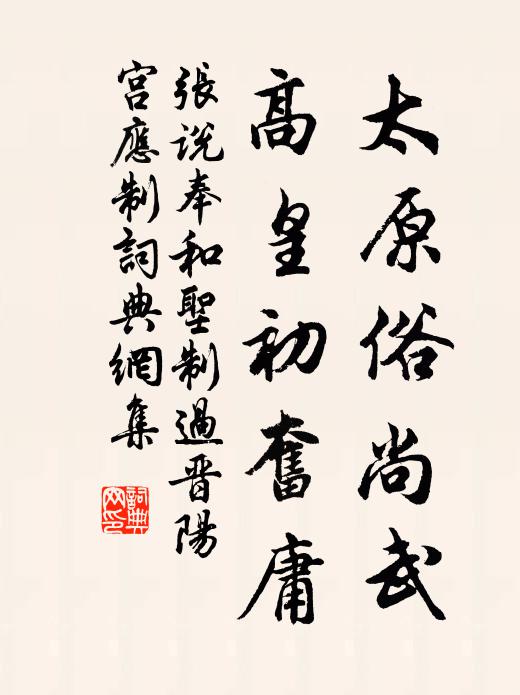 太原俗尚武
高皇初奮庸
張説奉和聖制過晋陽
宮應制詞典網集
詞典
网印